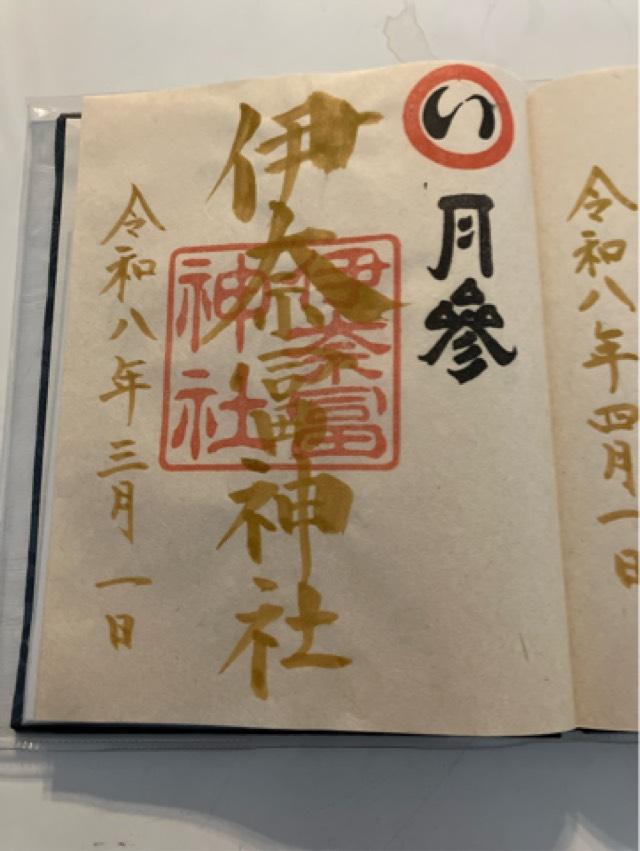 令和八年四月一日
い
月參
伊奈冨神社
伊奈冨
神社
令和八年三月一日